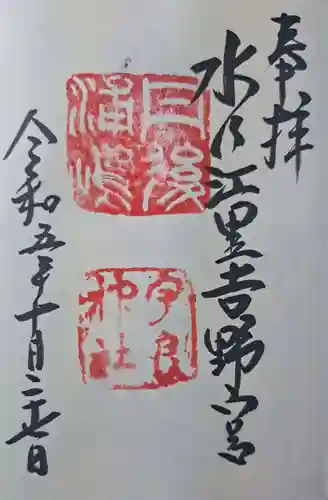 奉拝
水乃江里吉野宮
丹後
宇良
神社
令和五年十月二十七日